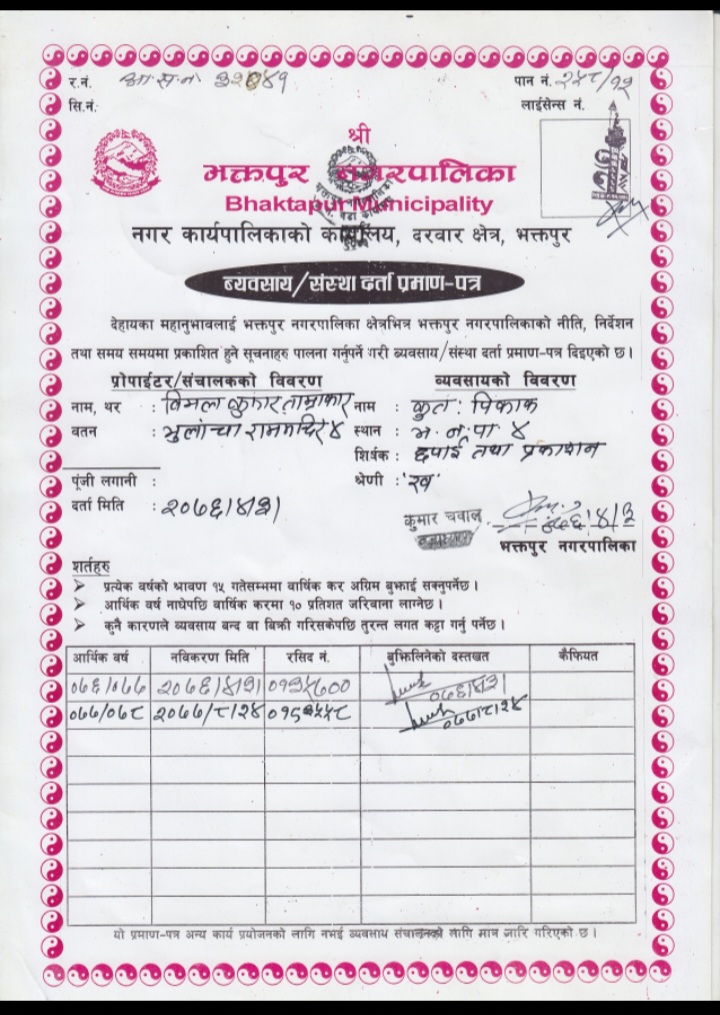 र.नं. आ.स.नं.
पान नं. २५८/१२
सि.नं.
लाईसेन्स नं.
श्री
भक्तपुर नगरपालिका
Bhaktapur Municipality
नगर कार्यपालिकाको कार्यालय, दरवार क्षेत्र, भक्तपुर
ब्यवसाय/संस्था दर्ता प्रमाण-पत्र
देहायका महानुभावलाई भक्तपुर नगरपालिका क्षेत्रभित्र भक्तपुर नगरपालिकाको नीति, निर्देशन
तथा समय समयमा प्रकाशित हुने सूचनाहरु पालना गर्नुपर्ने गरी ब्यवसाय/संस्था दर्ता प्रमाण-पत्र दिइएको छ।
प्रोपाईटर/संचालकको विवरण
ब्यवसायको विवरण
नाम, थर : विमल कुमार ताम्राकार
नाम : कुत: पिकाक
वतन : भुलांचा राममन्दिर ४
स्थान : भ.न.पा ४
शिर्षक : छपाई तथा प्रकाशन
पूंजी लगानी :
श्रेणी : 'ख'
दर्ता मिति : २०७६/४/३१
कुमार चवाल
भक्तपुर नगरपालिका
शर्तहरु
➢ प्रत्येक वर्षको श्रावण १५ गतेसम्ममा वार्षिक कर अग्रिम बुझाई सक्नुपर्नेछ।
➢ आर्थिक वर्ष नाघेपछि वार्षिक करमा १० प्रतिशत जरिवाना लाग्नेछ।
➢ कुनै कारणले ब्यवसाय बन्द वा बिक्री गरिसकेपछि तुरन्त लगत कट्टा गर्नु पर्नेछ।
आर्थिक वर्ष नविकरण मिति रसिद नं. बुझिलिनेको दस्तखत कैफियत
०७६/०७७ २०७६/४/३१ ०७६/४/३१
०७७/०७८ २०७७/८/२४ ०७७/८/२४
यो प्रमाण-पत्र अन्य कार्य प्रयोजनको लागि नभई ब्यवसाय संचालनको लागि मात्र जारि गरिएको छ।